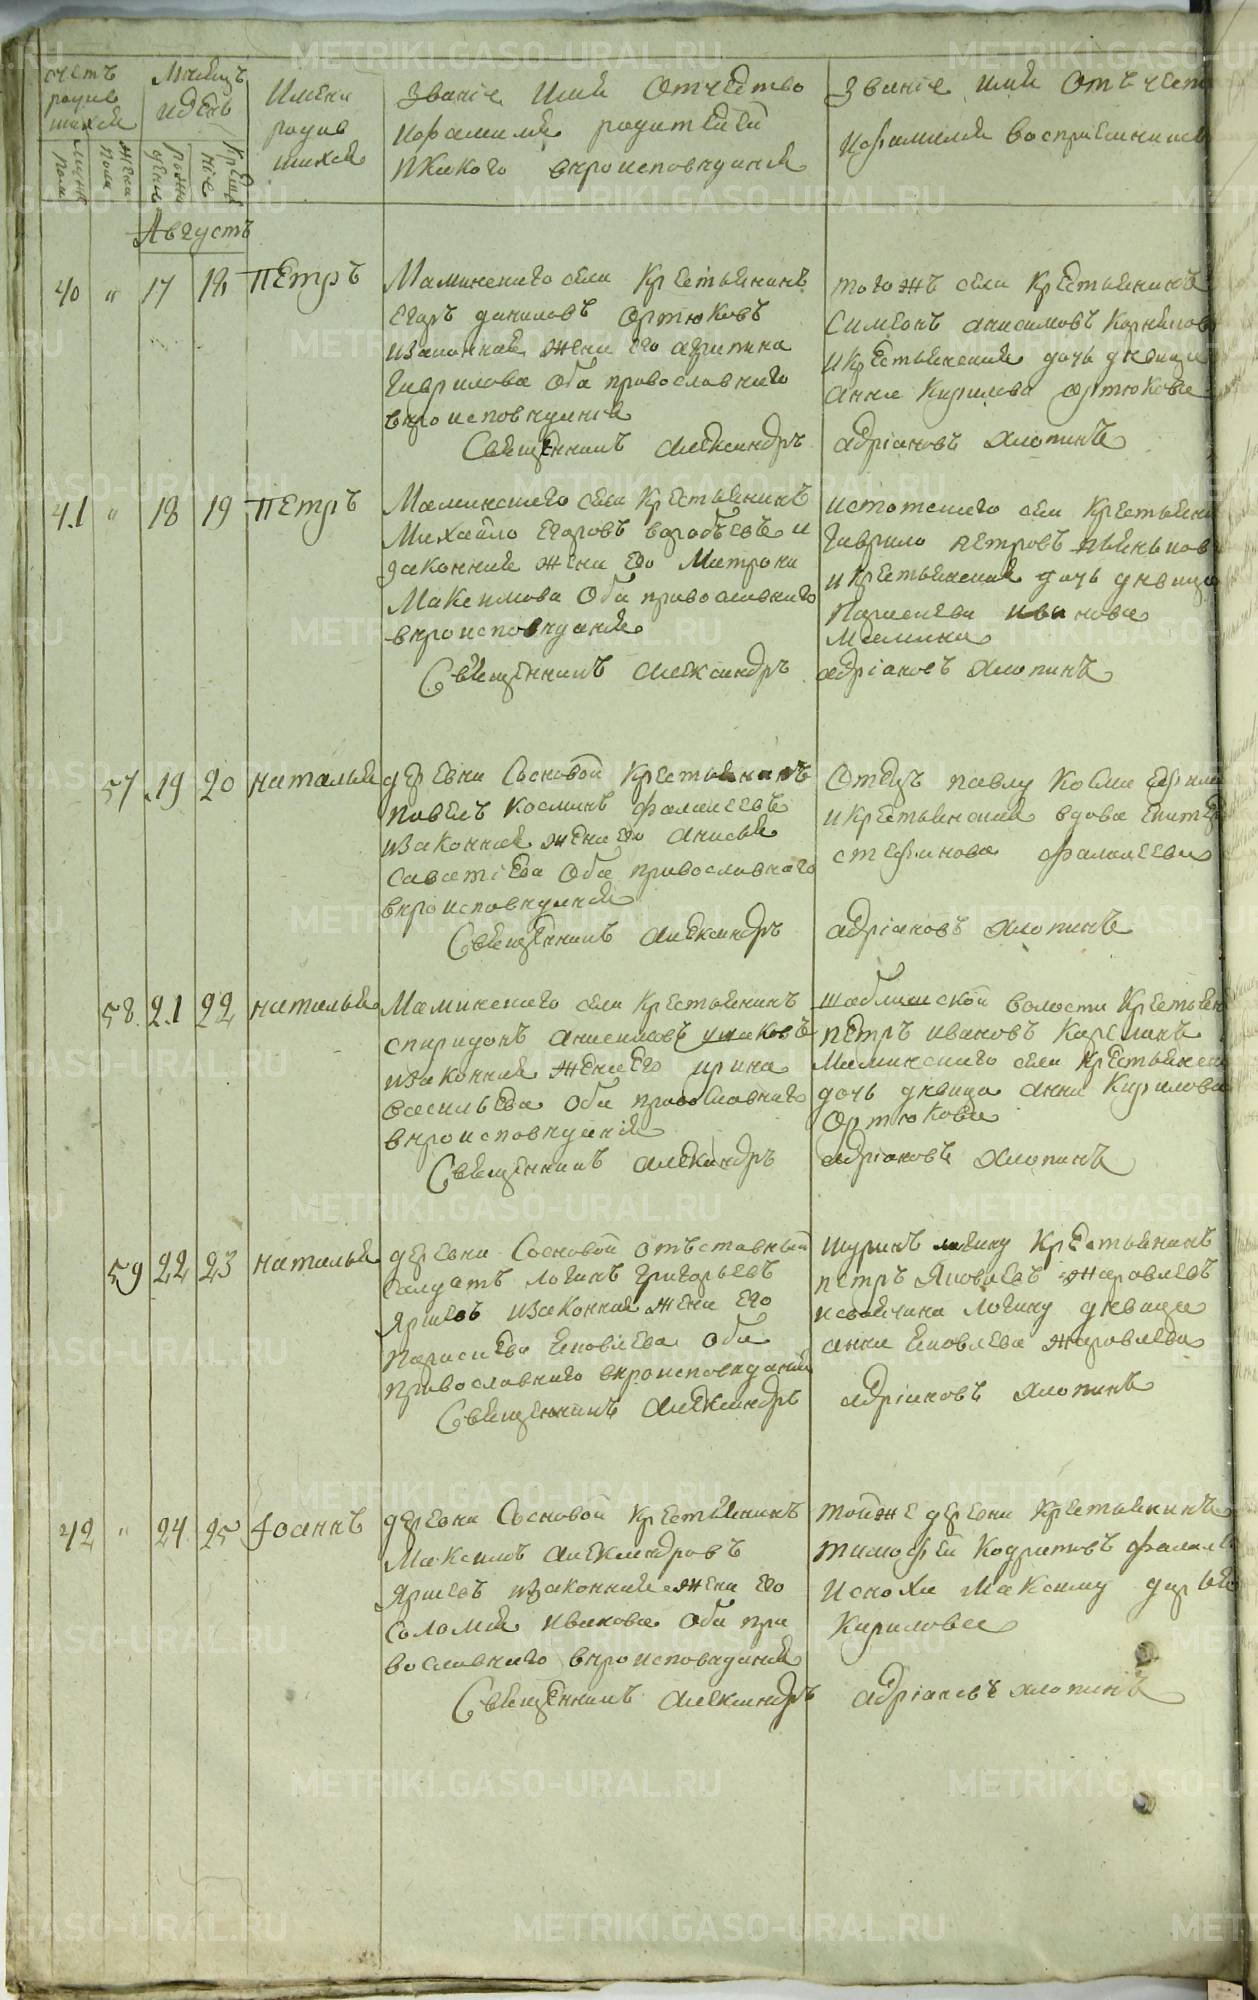 счетъ родившихся
Мѣсяцъ и день
Имена родившихся
Званіе, Имя Отчество и фамилія родителей и какого вѣроисповѣданія
Званіе имя Отъчест и фамилія восприемников
мужеска пола
женска пола
рожденіе
Крещеніе
Августъ
40 " 17 18 Петръ
Маминского села Крестьянинъ
Егоръ Даниловъ Ортюковъ
и законная жена его агрипина
Гаврилова Оба православнаго
вѣроисповѣданія
Священникъ Александръ
тогожъ села Крестьянинъ
Симеонъ анисимовъ Корнилов
и крестьянская дочь дѣвица
Анна Кирилова Ортюкова
адріановъ Хлопинъ
41 " 18 19 Петръ
Маминского села Крестьянинъ
Михайло Егоровъ воробьевъ и
законная жена Его Матрона
Максимова Оба православнаго
вѣроисповѣданія
Священникъ Александръ
Истотского села Крестьянин
Гаврило Петровъ пьяньков
и крестьянская дочь дѣвица
Параскева иванова
Мамина
адріановъ Хлопинъ
57 19 20 наталья
деревни Сосновой Крестьянинъ
Павелъ Косминъ фалалеевъ
и законная жена его анисья
Саватіева Оба православнаго
вѣроисповѣданія
Священникъ Александръ
Отецъ павлу Косма
и крестьянская вдова
стефанова фалалеева
адріановъ Хлопинъ
58 21 22 наталья
Маминского села Крестьянинъ
спиридонъ анисимовъ ушаковъ
и законная жена Его ирина
васильева Оба православнаго
вѣроисповѣданія
Священникъ Александръ
волости Крестьянин
Петръ ивановъ
Маминского села Крестьянска
дочь дѣвица анна Кирилова
Ортюкова
адріановъ Хлопинъ
59 22 23 наталья
деревни Сосновой отъставный
салдатъ логинъ григорьевъ
Яриевъ и законная жена Его
Параскева Яковлева Оба
православнаго вѣроисповѣданія
Священникъ Александръ
шуринъ логину Крестьянинъ
петръ Яковлевъ Жаровлевъ
и свойчина Логину дѣвица
анна Яковлева Жаровлева
адріановъ Хлопинъ
42 " 24 25 Іоаннъ
деревни Сосновой Крестьянинъ
Максимъ Александровъ
Яриевъ и законная жена Его
соломія иванова Оба пра
вославнаго вѣроисповѣданія
Священникъ Александръ
тойже деревни Крестьянинъ
тимофей Кодратовъ фалале
и сноха Максиму дарья
Кирилова
адріановъ Хлопинъ
METRIKI.GASO-URAL.RU